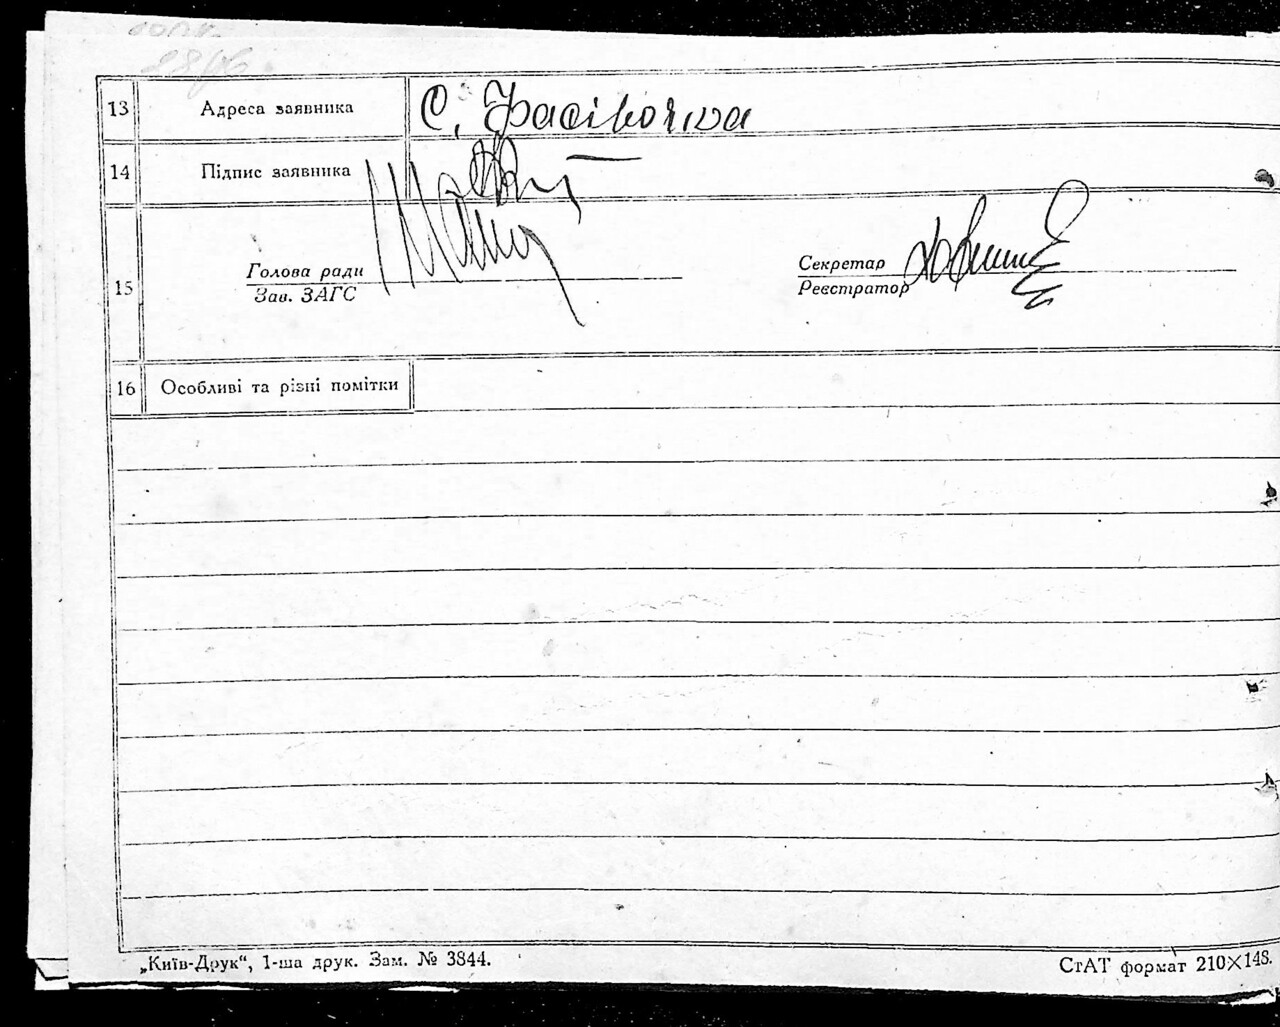 13 Адреса заявника С. Фасівочка
14 Підпис заявника
15
Голова ради
Зав. ЗАГС
Секретар
Реєстратор
16 Особливі та різні помітки
„Київ-Друк“, 1-ша друк. Зам. № 3844.
СтАТ формат 210×148.